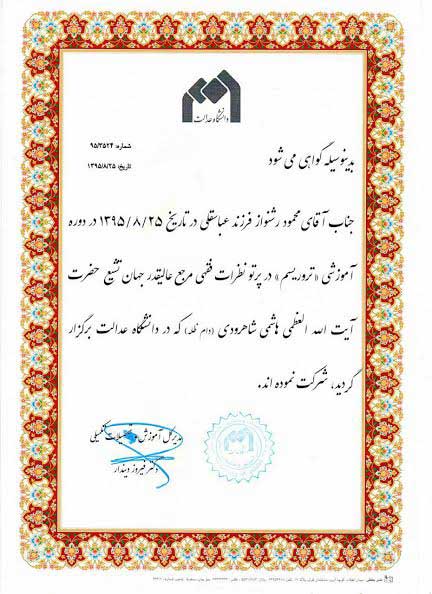 دانشگاه عدالت
شماره: ۹۵/۳۵۲۴
تاریخ: ۱۳۹۵/۸/۲۵
بدینوسیله گواهی می شود
جناب آقای محمود رشنواز فرزند عباسقلی در تاریخ ۱۳۹۵/۸/۲۵ در دوره
آموزشی «تروریسم» در پرتو نظرات فقهی مرجع عالیقدر جهان تشیع حضرت
آیت الله العظمی هاشمی شاهرودی (دام ظله) که در دانشگاه عدالت برگزار
گردید، شرکت نموده اند.
مدیر کل آموزش و تحصیلات تکمیلی
دکتر فیروز دیندار